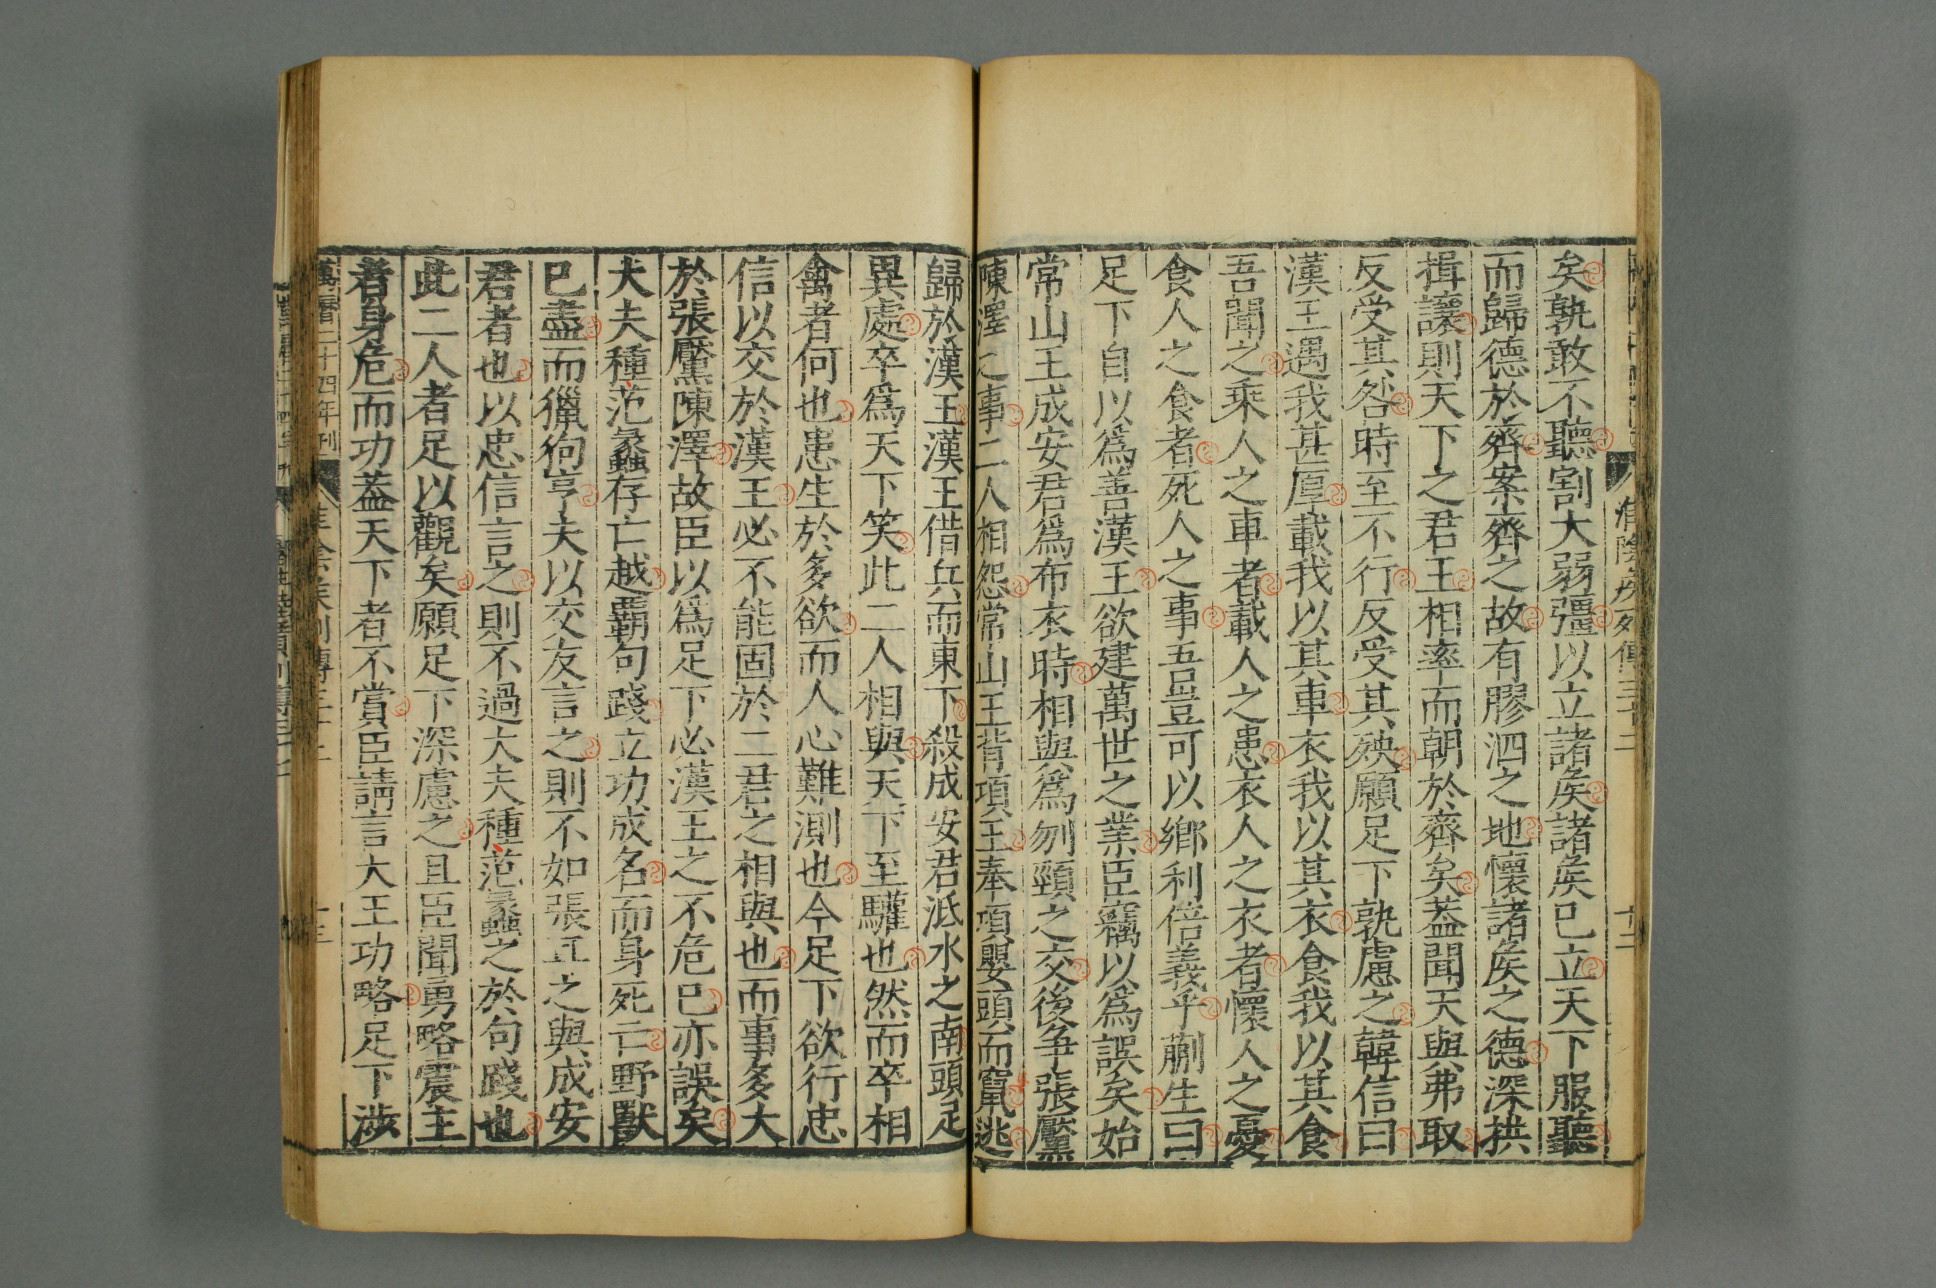 淮陰侯列傳三十二
十二
矣孰敢不聽割大弱彊以立諸侯諸侯已立天下服聽
而歸德於齊案齊之故有膠泗之地懷諸侯之德深拱
揖讓則天下之君王相率而朝於齊矣葢聞天與弗取
反受其咎時至不行反受其殃願足下孰慮之韓信曰
漢王遇我甚厚載我以其車衣我以其衣食我以其食
吾聞之乘人之車者載人之患衣人之衣者懷人之憂
食人之食者死人之事吾豈可以鄉利倍義乎蒯生曰
足下自以爲善漢王欲建萬世之業臣竊以爲誤矣始
常山王成安君爲布衣時相與爲刎頸之交後爭張黶
陳澤之事二人相怨常山王背項王奉項嬰頭而竄逃
歸於漢王漢王借兵而東下殺成安君泜水之南頭足
異處卒爲天下笑此二人相與天下至驩也然而卒相
禽者何也患生於多欲而人心難測也今足下欲行忠
信以交於漢王必不能固於二君之相與也而事多大
於張黶陳澤故臣以爲足下必漢王之不危已亦誤矣
大夫種范蠡存亡越霸句踐立功成名而身死亡野獸
已盡而獵狗亨夫以交友言之則不如張耳之與成安
君者也以忠信言之則不過大夫種范蠡之於句踐也
此二人者足以觀矣願足下深慮之且臣聞勇略震主
者身危而功葢天下者不賞臣請言大王功略足下涉
萬曆二十四年刊
淮陰侯列傳三十二
十三